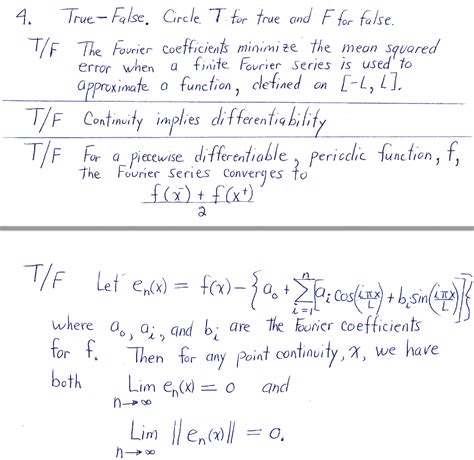 4. True-False. Circle T for true and F for false.
T/F The Fourier coefficients minimize the mean squared
error when a finite Fourier series is used to
approximate a function, defined on [-L, L].
T/F Continuity implies differentiability
T/F For a piecewise differentiable, periodic function, f,
the Fourier series converges to
f(x⁻) + f(x⁺)
2
T/F Let eₙ(x) = f(x) - {a₀ + ∑ⁿᵢ₌₁[aᵢ cos(iπx/L) + bᵢ sin(iπx/L)]}
where a₀, aᵢ, and bᵢ are the Fourier coefficients
for f. Then for any point continuity, x, we have
both Lim n→∞ eₙ(x) = 0 and
Lim n→∞ ||eₙ(x)|| = 0.